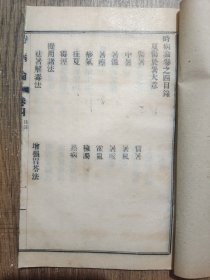 時病論卷之四目錄
夏傷於暑大意
傷暑 冒暑
中暑 暑風
暑溫 暑咳
暑瘵 霍亂
痧氣 穢濁
疰夏 熱病
霉濕
擬用諸法
祛暑解毒法 增損胃苓法
時病論 卷四